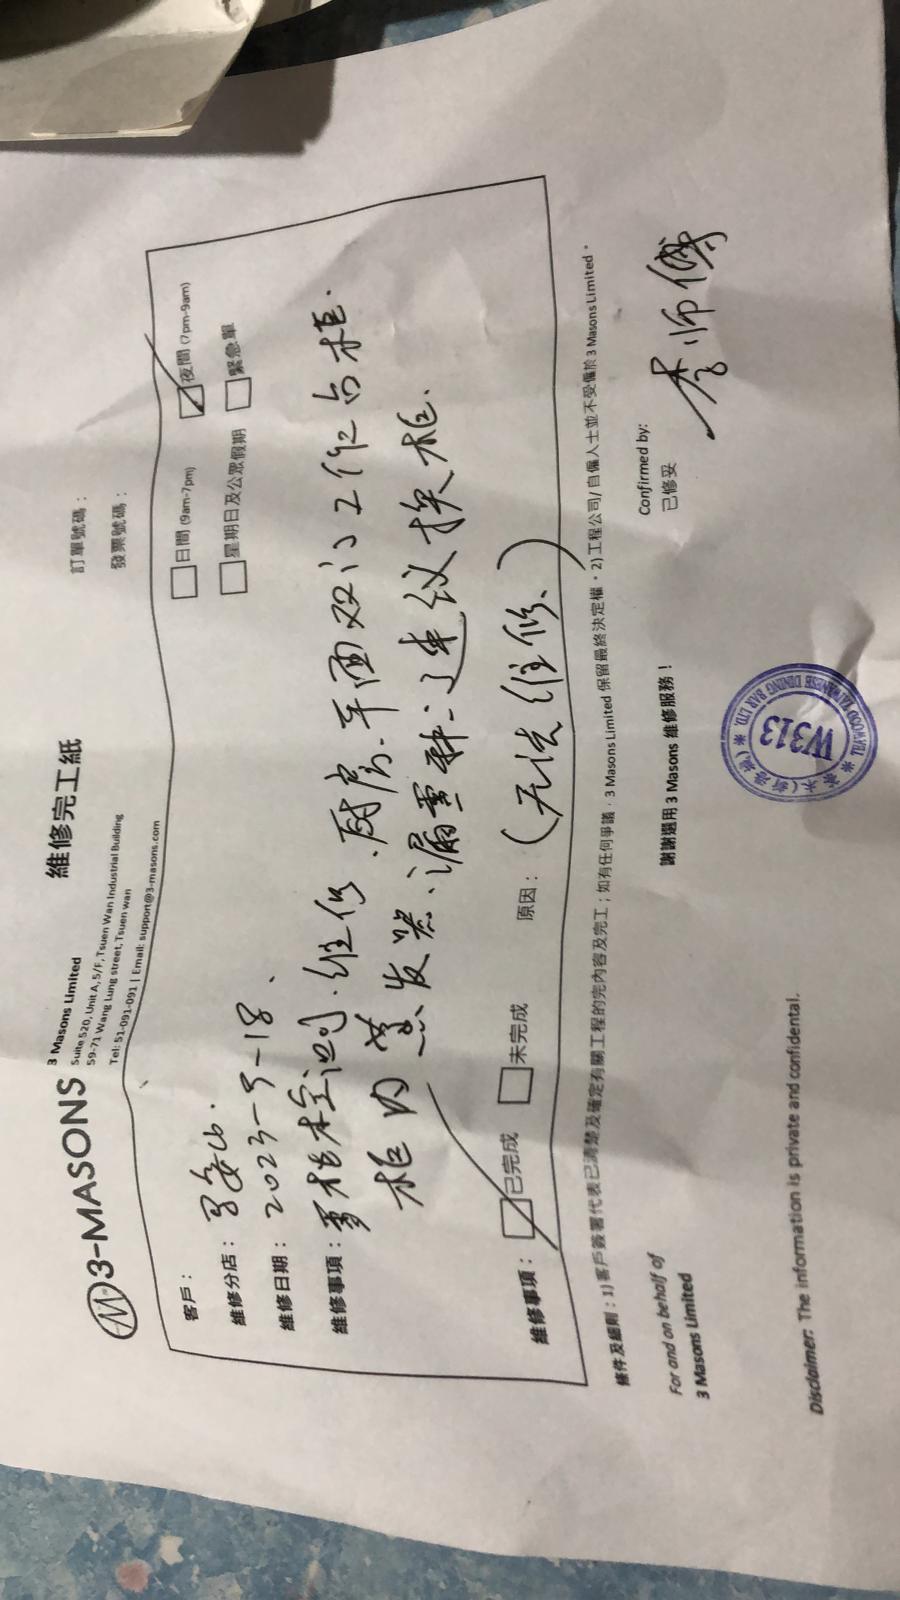 3-MASONS
3 Masons Limited
維修完工紙
Suite 520, Unit A, 5/F, Tsuen Wan Industrial Building
59-71 Wang Lung street, Tsuen wan
Tel: 51-091-091 | Email: support@3-masons.com
訂單號碼：
發票號碼：
客戶：
日間 (9am-7pm)
夜間 (7pm-9am)
維修分店：
星期日及公眾假期
緊急單
維修日期： 2023-5-18
維修事項： 检测.维修.厨房.平面双门工作台柜.
柜内蒸发器.漏雪种.建议换柜.
維修事項： 已完成 未完成 原因： (无法维修.)
條件及細則：1)客戶簽署代表已清楚及確定有關工程的完內容及完工；如有任何爭議，3 Masons Limited 保留最終決定權。2)工程公司/自僱人士並不受僱於 3 Masons Limited。
For and on behalf of
3 Masons Limited
謝謝選用 3 Masons 維修服務！
Confirmed by:
已修妥
李师傅
W313
TAIWANESE DINING BAR LTD.
Disclaimer: The information is private and confidential.